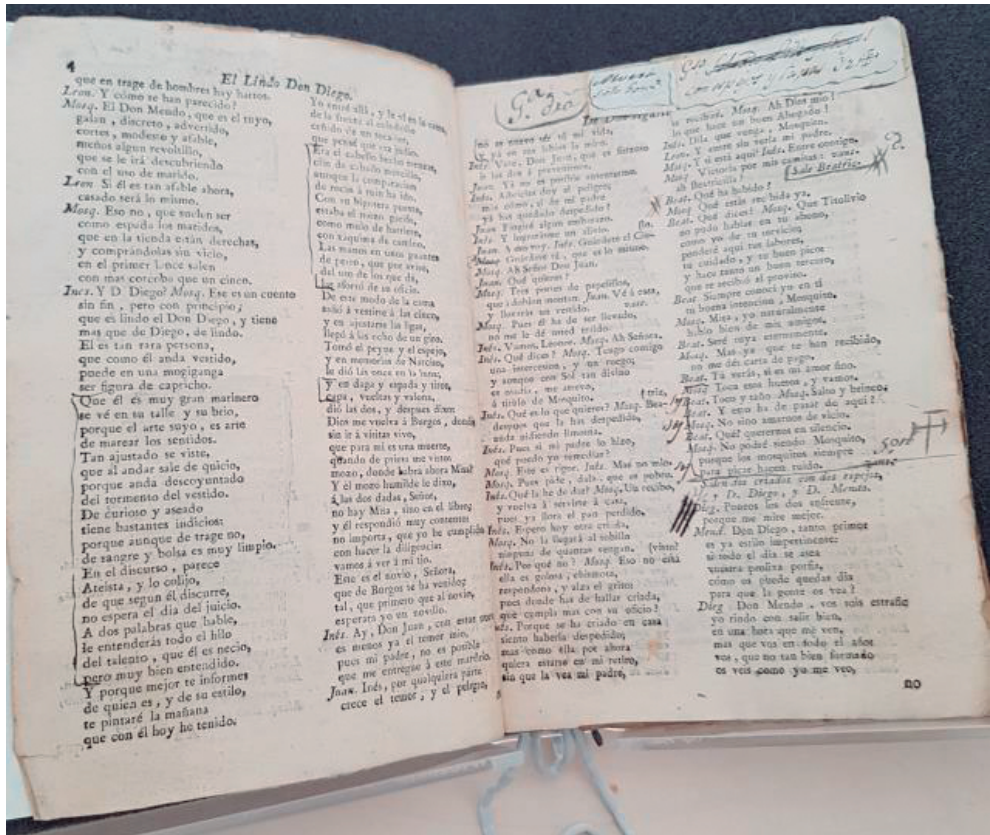 4
El Lindo Don Diego.
que en trage de hombres hay hartos.
Leon. Y cómo se han parecido?
Mosq. El Don Mendo, que es el tuyo,
galan, discreto, advertido,
cortes, modesto y afable,
menos algun revoltillo,
que se le irá descubriendo
con el uso de marido.
Leon Si él es tan afable ahora,
casado será lo mismo.
Mosq. Eso no, que suelen ser
como espada los maridos,
que en la tienda están derechas,
y comprándolas sin vicio,
en el primer lance salen
con mas corcoba que un cinco.
Ines. Y D. Diego? Mosq. Ese es un cuento
sin fin, pero con principio;
que es lindo el Don Diego, y tiene
mas que de Diego, de lindo.
El es tan rara persona,
que como él anda vestido,
puede en una mogiganga
ser figura de capricho.
Que él es muy gran marinero
se vé en su talle y su brio,
porque el arte suyo, es arte
de marear los sentidos.
Tan ajustado se viste,
que al andar sale de quicio,
porque anda descoyuntado
del tormento del vestido.
De curioso y aseado
tiene bastantes indicios;
porque aunque de trage no,
de sangre y bolsa es muy limpio.
En el discurso, parece
Ateista, y lo colijo,
de que segun él discurre,
no espera el dia del juicio.
A dos palabras que hable,
le entenderás todo el hilo
del talento, que él es necio,
pero muy bien entendido.
Y porque mejor te informes
de quien es, y de su estilo,
te pintaré la mañana
que con él hoy he tenido.
Yo entré allá, y le vi en la cama,
de la frente al colodrillo
ceñido de un tocador,
que pensé que era judio.
Era el cabello hecho trenzas,
clin de caballo morcillo,
aunque la comparacion
de rocin á ruin ha ido.
Con su bigotera puesta,
estaba el mozo garrido,
como mulo de harriero,
con xáquima de camino.
Las manos en unos guantes
de perro, que por aviso,
del uso de los que da,
las aforró de su oficio.
De este modo de la cama
salió á vestirse á las cinco,
y en ajustarse las ligas,
llegó á las ocho de un giro.
Tomó el peyne y el espejo,
y en memorias de Narciso,
le dió las once en la luna;
y en daga y espada y tiros,
capa, vueltas y valona,
dió las dos, y despues dixo:
Dios me vuelva á Burgos, donde
sin ir á visitas vivo,
que para mi es una muerte,
quando de priesa me visto:
mozo, donde habrá ahora Misa?
Y el mozo humilde le dixo,
á las dos dadas, Señor,
no hay Misa, sino en el libro;
y él respondió muy contento
no importa, que yo he cumplido
con hacer la diligencia:
vamos á ver á mi tio.
Este es el novio, Señora,
que de Burgos se ha venido;
tal, que primero que al novio,
esperara yo un novillo.
Inés. Ay, Don Juan, con estas
es menos ya el temor mio,
pues mi padre, no es posible
que me entregue á este martirio.
Juan. Inés, por qualquiera parte
crece el temor, y el peligro,
no es nuevo
Inés. Vete, Don Juan, que es forzoso
ir las dos á prevenirnos.
Juan. Fingiré algun embarazo.
Inés. Y lograréme un alivio.
Mosq. Ah Señor Don Juan.
Juan. Qué quieres?
Mosq. Tres portes de papelillos,
que debian montar. Juan. Vé á casa,
y llevarás un vestido. vase.
Mosq. Pues él ha de ser llevado,
no me le dé usted traido.
Inés. Vamos, Leonor. Mosq. Ah Señora.
Inés. Qué dices? Mosq. Tengo contigo
una intercesion, y un ruego;
á título de Mosquito.
Inés. Qué es lo que quieres? Mosq. Bea-
triz,
despues que la has despedido,
anda pidiendo limosna.
Inés. Pues si mi padre lo hizo,
qué puedo yo remediar?
y vuelva á servirte á casa,
pues ya llora el pan perdido.
Inés. Espero hoy otra criada.
Mosq. No la llegará al tobillo
ninguna de quantas vengan.
Inés. Por qué no? Mosq. Eso no está visto?
ella es golosa, chismosa,
respondona, y alza el grito:
pues donde has de hallar criada,
que cumpla mas con su oficio?
Inés. Porque se ha criado en casa
siento haberla despedido;
mas como ella por ahora
quiera estarse en mi retiro,
sin que la vea mi padre,
es recibida. Mosq. Ah Dios mio!
lo que hace un buen Abogado!
Inés. Dila, que venga, Mosquito.
Leon. Y entre sin verla mi padre.
Mosq. Y si está aqui? Inés. Entre contigo.
Mosq. Victoria por mis camisas: vanse.
ah Beatricilla! Sale Beatriz.
Beat. Qué ha habido?
Mosq. Qué estás recibida ya.
Beat. Qué dices? Mosq. Que Titolivio
no pudo hablar en tu abono,
como yo de tu servicio;
ponderé aqui tus labores,
tu cuidado, y tu buen pico:
y hace tanto un buen tercero,
que se recibió al proviso.
Beat. Siempre conocí yo en ti
tu buena intencion, Mosquito.
Mosq. Mira, yo naturalmente
hablo bien de mis amigos.
Beat. Seré tuya eternamente.
Mosq. Mas ya que te han recibido,
no me des carta de pago.
Beat. Tú verás, si es mi amor fino.
Mosq. Toca esos huesos, y vamos.
Beat. Toco y taño. Mosq. Salto y brinco.
Beat. Y esto ha de pasar de aqui?
Mosq. No sino amarnos de vicio.
Beat. Qué? querernos en silencio.
Mosq. No podré siendo Mosquito,
porque los mosquitos siempre
para picar hacen ruido. vanse.
Salen dos criados con dos espejos,
y D. Diego, y D. Mendo.
Dieg. Poneos los dos enfrente,
porque me mire mejor.
Mend. Don Diego, tanto primor
es ya estilo impertinente:
si todo el dia se asea
vuestra prolixa porfia,
cómo os puede quedar dia
para que la gente os vea?
Dieg. Don Mendo, vos sois estraño
yo rindo con salir bien,
en una hora que me ven,
mas que vos en todo el año:
vos, que no tan bien formado
os veis como yo me veo,
no